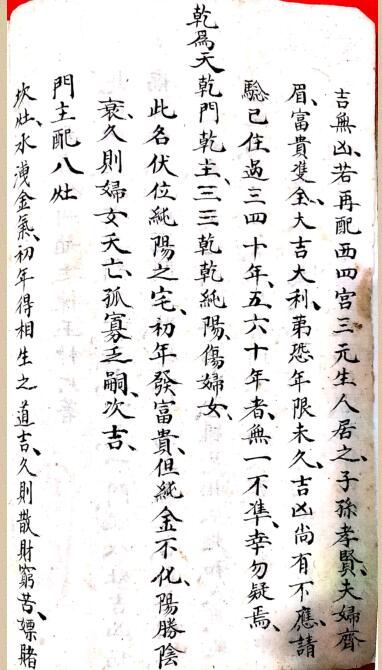 吉無凶、若再配西四宮三元生人居之、子孫孝賢、夫婦齊
眉、富貴雙全、大吉大利、第恐年限未久、吉凶尚有不應、請
驗已住過三四十年、五六十年者、無一不準、幸勿疑焉、
乾為天乾門乾主、三三乾乾純陽、傷婦女、
此名伏位純陽之宅、初年發富貴、但純金不化、陽勝陰
衰、久則婦女夭亡、孤寡乏嗣、次吉、
門主配八灶
坎灶、水洩金氣、初年得相生之道吉、久則散財窮苦、嫖賭